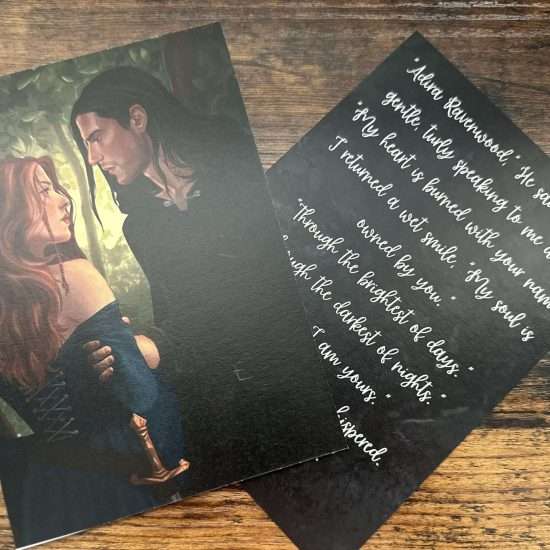 "Adira Ravenwood," He sa
gentle, turly speaking to me
"My heart is burned with your nam
I returned a wet smile, "My soul is
owned by you."
"Through the brightest of days."
ough the darkest of nights."
I am yours."
ispered.